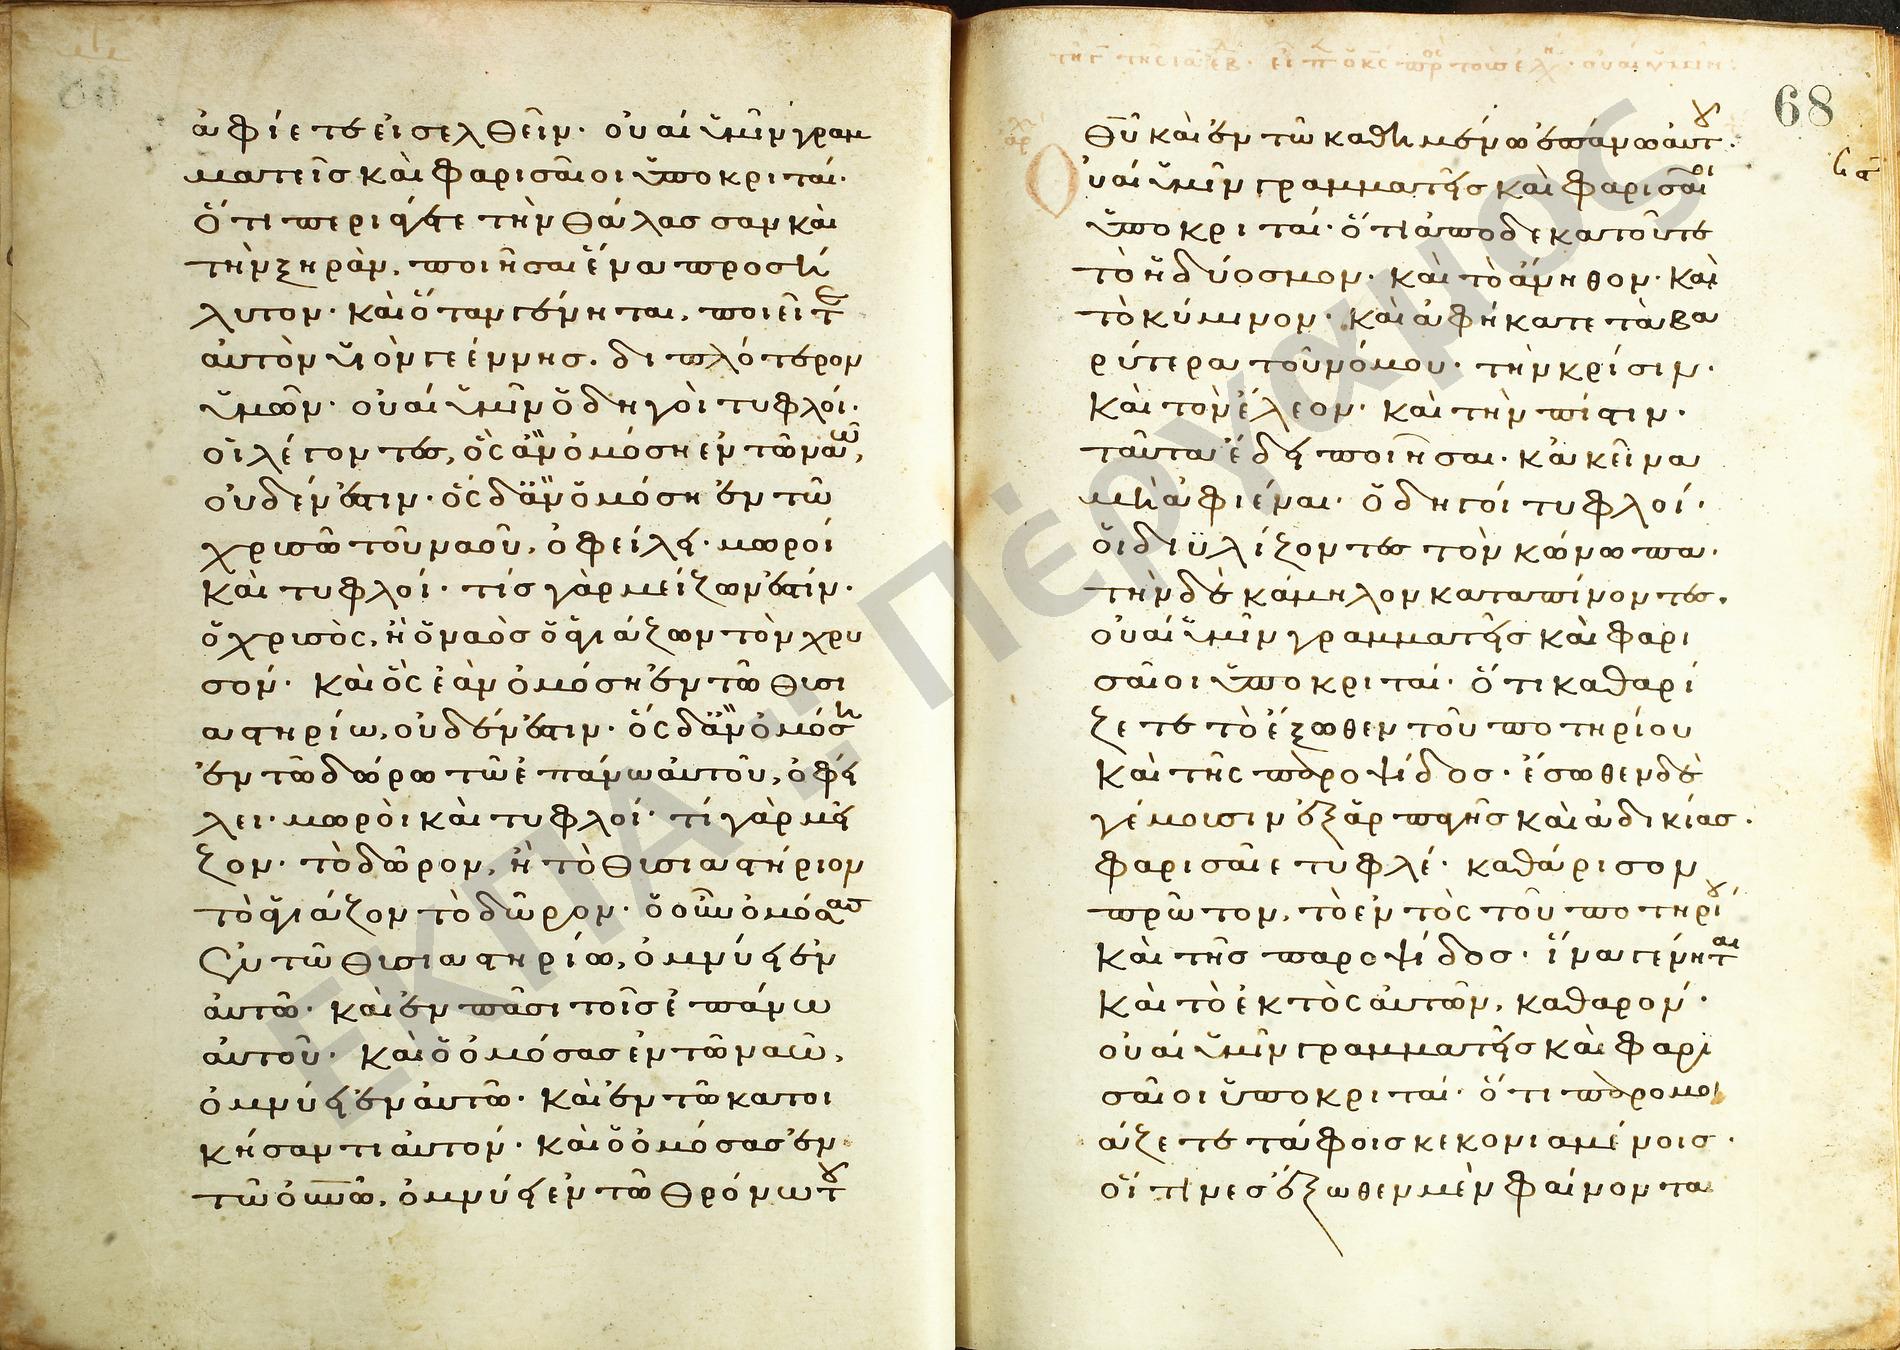 ἀφίετε εἰσελθεῖν· οὐαί ὑμῖν γραμ
ματεῖς καὶ φαρισαῖοι ὑποκριταί·
ὅτι περιάγετε τὴν θάλασσαν καὶ
τὴν ξηρὰν, ποιῆσαι ἕνα προσή
λυτον· καὶ ὅταν γένηται, ποιεῖτε
αὐτὸν υἱὸν γεέννης, διπλότερον
ὑμῶν· οὐαί ὑμῖν ὁδηγοὶ τυφλοί·
οἱ λέγοντες, ὃς ἂν ὀμόση ἐν τῶ ναῶ,
οὐδέν ἐστιν· ὃς δ' ἂν ὀμόση ἐν τῶ
χρισῶ τοῦ ναοῦ, ὀφείλει· μωροί
καὶ τυφλοί· τίς γὰρ μείζων ἐστίν·
ὁ χρισὸς, ἢ ὁ ναὸς ὁ ἁγιάζων τὸν χρυ
σόν· καὶ ὃς ἐὰν ὀμόση ἐν τῶ θισι
αστηρίω, οὐδέν ἐστιν· ὃς δ' ἂν ὀμόση
ἐν τῶ δώρω τῶ ἐπάνω αὐτοῦ, ὀφεί
λει· μωροὶ καὶ τυφλοί· τί γὰρ μεῖ
ζον· τὸ δῶρον, ἢ τὸ θισιαστήριον
τὸ ἁγιάζον τὸ δῶρον· ὁ οὖν ὀμόσας
ἐν τῶ θισιαστηρίω, ὀμνύει ἐν
αὐτῶ· καὶ ἐν πᾶσι τοῖς ἐπάνω
αὐτοῦ· καὶ ὁ ὀμόσας ἐν τῶ ναῶ,
ὀμνύει ἐν αὐτῶ· καὶ ἐν τῶ κατοι
κήσαντι αὐτόν· καὶ ὁ ὀμόσας ἐν
τῶ οὐνῶ, ὀμνύει ἐν τῶ θρόνω τοῦ
68
θῦ καὶ ἐν τῶ καθημένω ἐπάνω αὐτοῦ·
Οὐαί ὑμῖν γραμματεῖς καὶ φαρισαῖοι
ὑποκριταί· ὅτι ἀποδεκατοῦτε
τὸ ἡδύοσμον· καὶ τὸ ἄνηθον· καὶ
τὸ κύμινον· καὶ ἀφήκατε τὰ βα
ρύτερα τοῦ νόμου· τὴν κρίσιν·
καὶ τὸν ἔλεον· καὶ τὴν πίστιν·
ταῦτα ἔδει ποιῆσαι· κἀκεῖνα
μὴ ἀφιέναι· ὁδηγοί τυφλοί·
οἱ διϋλίζοντες τὸν κώνωπα·
τὴν δὲ κάμηλον καταπίνοντες.
οὐαί ὑμῖν γραμματεῖς καὶ φαρι
σαῖοι ὑποκριταί· ὅτι καθαρί
ζετε τὸ ἔξωθεν τοῦ ποτηρίου
καὶ τῆς παροψίδος· ἔσωθεν δὲ
γέμοισιν ἐξ ἁρπαγῆς καὶ ἀδικίας·
φαρισαῖε τυφλέ· καθάρισον
πρῶτον, τὸ ἐντὸς τοῦ ποτηρίου
καὶ τῆς παροψίδος· ἵνα γένηται
καὶ τὸ ἐκτὸς αὐτῶν, καθαρόν·
οὐαί ὑμῖν γραμματεῖς καὶ φαρι
σαῖοι ὑποκριταί· ὅτι παρομοι
άζετε τάφοις κεκονιαμένοις·
οἵτινες ἔξωθεν μὲν φαίνονται
ΕΚΠΑ :: Πέργαμος